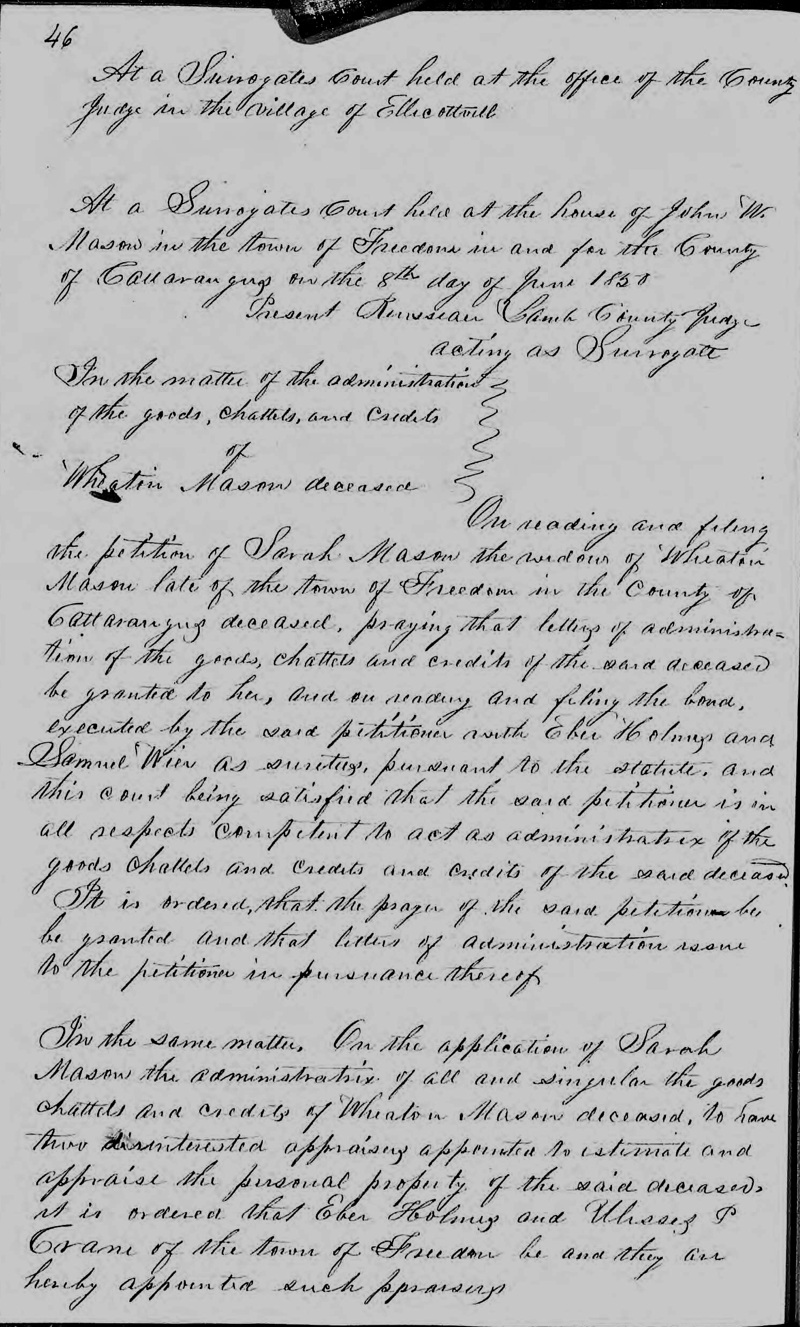 46
At a Surrogates Court held at the office of the County
Judge in the village of Ellicottvill
At a Surrogates Court held at the house of John W.
Mason in the town of Freedom in and for the County
of Cattaraugus on the 8th day of June 1850
Present Rensselaer Lamb County Judge
acting as Surrogate
In the matter of the administration
of the goods, chattels, and Credits
of
Wheaton Mason deceased
On reading and filing
the petition of Sarah Mason the widow of Wheaton
Mason late of the town of Freedom in the County of
Cattaraugus deceased, praying that letters of administra=
tion of the goods, chattels and credits of the said deceased
be granted to her, and on reading and filing the bond,
executed by the said petitioner with Eber Holmes and
Samuel Wier as sureties, pursuant to the statute, and
this court being satisfied that the said petitioner is in
all respects competent to act as administratrix of the
goods chattels and credits and credits of the said deceased.
It is ordered, that the prayer of the said petitioner be
be granted and that letters of administration issue
to the petitioner in pursuance thereof
In the same matter, On the application of Sarah
Mason the administratrix of all and singular the goods
chattels and credits of Wheaton Mason deceased, to have
two disinterested appraisers appointed to estimate and
appraise the personal property of the said deceased,
it is ordered that Eber Holmes and Ulisses P
Crane of the town of Freedom be and they are
hereby appointed such ppraisers